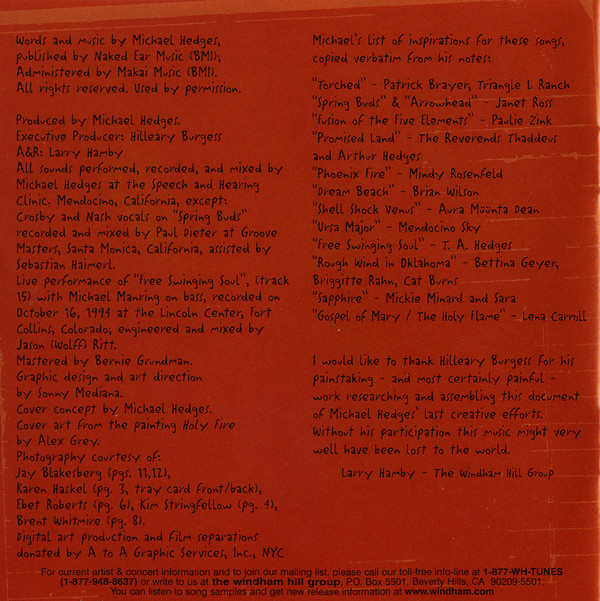 Words and music by Michael Hedges,
published by Naked Ear Music (BMI);
Administered by Makai Music (BMI).
All rights reserved. Used by permission.
Produced by Michael Hedges.
Executive Producer: Hilleary Burgess
A&R: Larry Hamby
All sounds performed, recorded, and mixed by
Michael Hedges at the Speech and Hearing
Clinic, Mendocino, California, except:
Crosby and Nash vocals on "Spring Buds"
recorded and mixed by Paul Dieter at Groove
Masters, Santa Monica, California, assisted by
Sebastian Haimerl.
Live performance of "Free Swinging Soul", (track
15) with Michael Manring on bass, recorded on
October 16, 1994 at the Lincoln Center, Fort
Collins, Colorado; engineered and mixed by
Jason (Wolff) Ritt.
Mastered by Bernie Grundman.
Graphic design and art direction
by Sonny Mediana.
Cover concept by Michael Hedges.
Cover art from the painting Holy Fire
by Alex Grey.
Photography courtesy of:
Jay Blakesberg (pgs. 11,12),
Karen Haskel (pg. 3, tray card front/back),
Ebet Roberts (pg. 6), Kim Stringfellow (pg. 4),
Brent Whitmire (pg. 8).
Digital art production and film separations
donated by A to A Graphic Services, Inc., NYC
Michael's list of inspirations for these songs,
copied verbatim from his notes:
"Torched" - Patrick Brayer, Triangle L Ranch
"Spring Buds" & "Arrowhead" - Janet Ross
"Fusion of the Five Elements" - Paulie Zink
"Promised Land" - The Reverends Thaddeus
and Arthur Hedges
"Phoenix Fire" - Mindy Rosenfeld
"Dream Beach" - Brian Wilson
"Shell Shock Venus" - Aura Müünta Dean
"Ursa Major" - Mendocino Sky
"Free Swinging Soul" - T. A. Hedges
"Rough Wind in Oklahoma" - Bettina Geyer,
Briggitte Rahn, Cat Burns
"Sapphire" - Mickie Minard and Sara
"Gospel of Mary / The Holy Flame" - Lena Carroll
I would like to thank Hilleary Burgess for his
painstaking - and most certainly painful -
work researching and assembling this document
of Michael Hedges' last creative efforts.
Without his participation this music might very
well have been lost to the world.
Larry Hamby - The Windham Hill Group
For current artist & concert information and to join our mailing list, please call our toll-free info-line at 1-877-WH-TUNES
(1-877-948-8637) or write to us at the windham hill group, P.O. Box 5501, Beverly Hills, CA 90209-5501.
You can listen to song samples and get new release information at www.windham.com